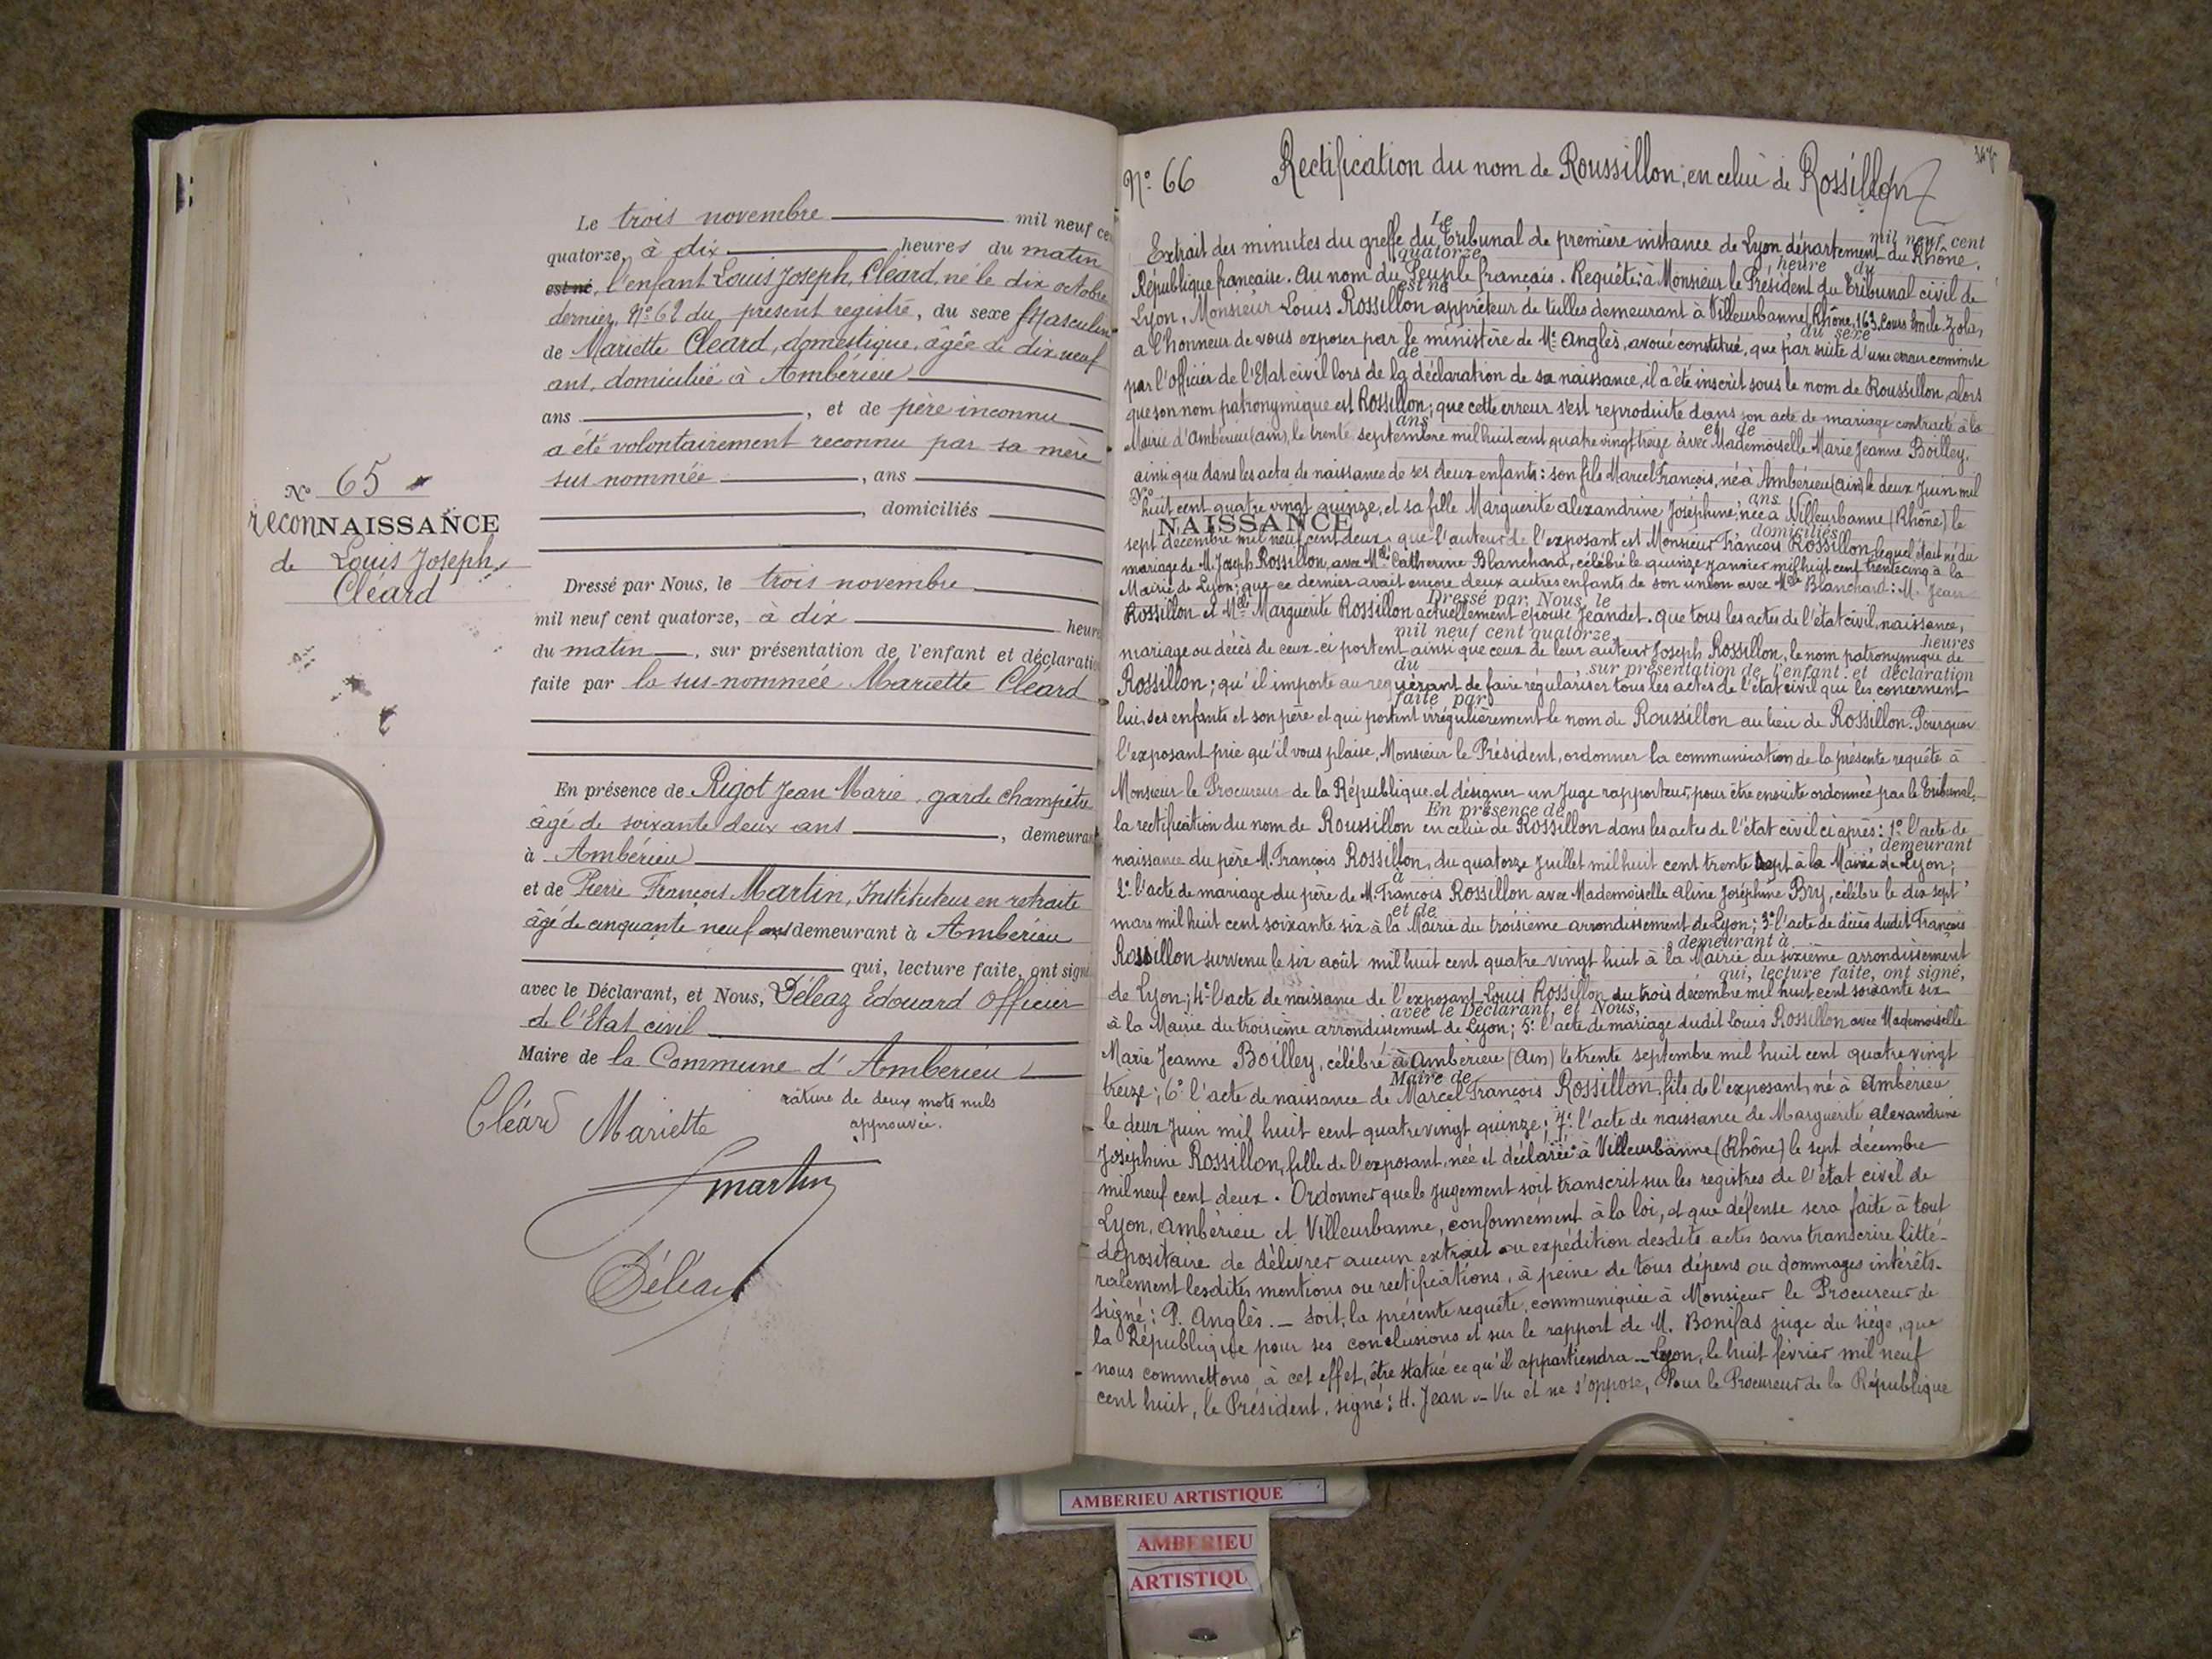 Le trois novembre mil neuf ce
quatorze, à dix heures du matin
est né, l'enfant Louis Joseph, Cléard, né le dix octobre
dernier, N° 62 du présent registre, du sexe Masculin
de Mariette Cléard, domestique, âgée de dix neuf
ans, domiciliée à Ambérieu
ans , et de père inconnu
a été volontairement reconnu par sa mère
sus nommée , ans
, domiciliés
N° 65
reconNAISSANCE
de Louis Joseph
Cléard
Dressé par Nous, le trois novembre
mil neuf cent quatorze, à dix heure
du matin , sur présentation de l'enfant et déclaratio
faite par la sus-nommée Mariette Cléard
En présence de Rigot Jean Marie, garde champêtre
âgé de soixante deux ans , demeurant
à Ambérieu
et de Pierre François Martin, Instituteur en retraite
âgé de cinquante neuf ans demeurant à Ambérieu
qui, lecture faite, ont signé
avec le Déclarant, et Nous, Déléaz Edouard Officier
de l'Etat civil
Maire de la Commune d'Ambérieu
rature de deux mots nuls
approuvée.
Cléard Mariette
Martin
Déléaz
N° 66 Rectification du nom de Roussillon, en celui de Rossillon
Le mil neuf cent
Extrait des minutes du greffe du Tribunal de première instance de Lyon département du Rhône.
quatorze, heure du
République française. Au nom du Peuple français. Requête: à Monsieur le Président du Tribunal civil de
est né
Lyon, Monsieur Louis Rossillon apprêteur de tulles demeurant à Villeurbanne (Rhône, 163, Cours Emile Zola,
, du sexe
a l'honneur de vous exposer par le ministère de Me Anglès, avoué constitué, que par suite d'une erreur commise
de
par l'officier de l'Etat civil lors de la déclaration de sa naissance, il a été inscrit sous le nom de Roussillon, alors
que son nom patronymique est Rossillon; que cette erreur s'est reproduite dans son acte de mariage contracté à la
ans et de
Mairie d'Ambérieu (ain), le trente septembre mil huit cent quatre vingt treize avec Mademoiselle Marie Jeanne Boilley,
ainsi que dans les actes de naissance de ses deux enfants: son fils Marcel François, né à Ambérieu (ain) le deux Juin mil
N° , ans
huit cent quatre vingt quinze, et sa fille Marguerite Alexandrine Joséphine, née à Villeurbanne (Rhône) le
NAISSANCE , domiciliés
sept décembre mil neuf cent deux; que l'auteur de l'exposant est Monsieur François Rossillon lequel était né du
mariage de M. Joseph Rossillon, avec Melle Catherine Blanchard, célébré le quinze Janvier mil huit cent trente cinq à la
Mairie de Lyon; que ce dernier avait encore deux autres enfants de son union avec Melle Blanchard: M. Jean
Dressé par Nous, le
Rossillon et Melle Marguerite Rossillon actuellement épouse Jeandet. Que tous les actes de l'état civil, naissance,
mil neuf cent quatorze, heures
mariage ou décès de ceux-ci portent ainsi que ceux de leur auteur Joseph Rossillon, le nom patronymique de
du , sur présentation de l'enfant et déclaration
Rossillon; qu'il importe au requérant de faire régulariser tous les actes de l'état civil qui les concernent
faite par
lui, ses enfants et son père et qui portent irrégulièrement le nom de Roussillon au lieu de Rossillon. Pourquoi
l'exposant prie qu'il vous plaise, Monsieur le Président, ordonner la communication de la présente requête à
Monsieur le Procureur de la République et désigner un Juge rapporteur, pour être ensuite ordonnée par le Tribunal,
En présence de
la rectification du nom de Roussillon en celui de Rossillon dans les actes de l'état civil ci après: 1° l'acte de
, demeurant
naissance du père M. François Rossillon, du quatorze Juillet mil huit cent trente sept à la Mairie de Lyon;
à
2° l'acte de mariage du père de M. François Rossillon avec Mademoiselle Aline Joséphine Bry, célébré le dix sept
et de
mars mil huit cent soixante six à la Mairie du troisième arrondissement de Lyon; 3° l'acte de décès dudit François
demeurant à
Rossillon survenu le six août mil huit cent quatre vingt huit à la Mairie du sixième arrondissement
qui, lecture faite, ont signé,
de Lyon; 4° l'acte de naissance de l'exposant Louis Rossillon du trois décembre mil huit cent soixante six
avec le Déclarant, et Nous,
à la Mairie du troisième arrondissement de Lyon; 5° l'acte de mariage dudit Louis Rossillon avec Mademoiselle
Marie Jeanne Boilley, célébré à Ambérieu (Ain) le trente septembre mil huit cent quatre vingt
Maire de
treize; 6° l'acte de naissance de Marcel François Rossillon, fils de l'exposant, né à Ambérieu
le deux Juin mil huit cent quatre vingt quinze; 7° l'acte de naissance de Marguerite Alexandrine
Joséphine Rossillon, fille de l'exposant, née et déclarée à Villeurbanne (Rhône) le sept décembre
mil neuf cent deux. Ordonner que le jugement soit transcrit sur les registres de l'état civil de
Lyon, Ambérieu et Villeurbanne, conformément à la loi, et que défense sera faite à tout
dépositaire de délivrer aucun extrait ou expédition desdits actes sans transcrire litté-
ralement lesdites mentions ou rectifications, à peine de tous dépens ou dommages intérêts.
Signé: P. Anglès. — Soit, la présente requête, communiquée à Monsieur le Procureur de
la République pour ses conclusions et sur le rapport de M. Bonifas juge du siège, que
nous commettons à cet effet, être statué ce qu'il appartiendra — Lyon, le huit février mil neuf
cent huit, le Président, signé: H. Jean — Vu et ne s'oppose, Pour le Procureur de la République
AMBERIEU ARTISTIQUE
AMBERIEU
ARTISTIQU